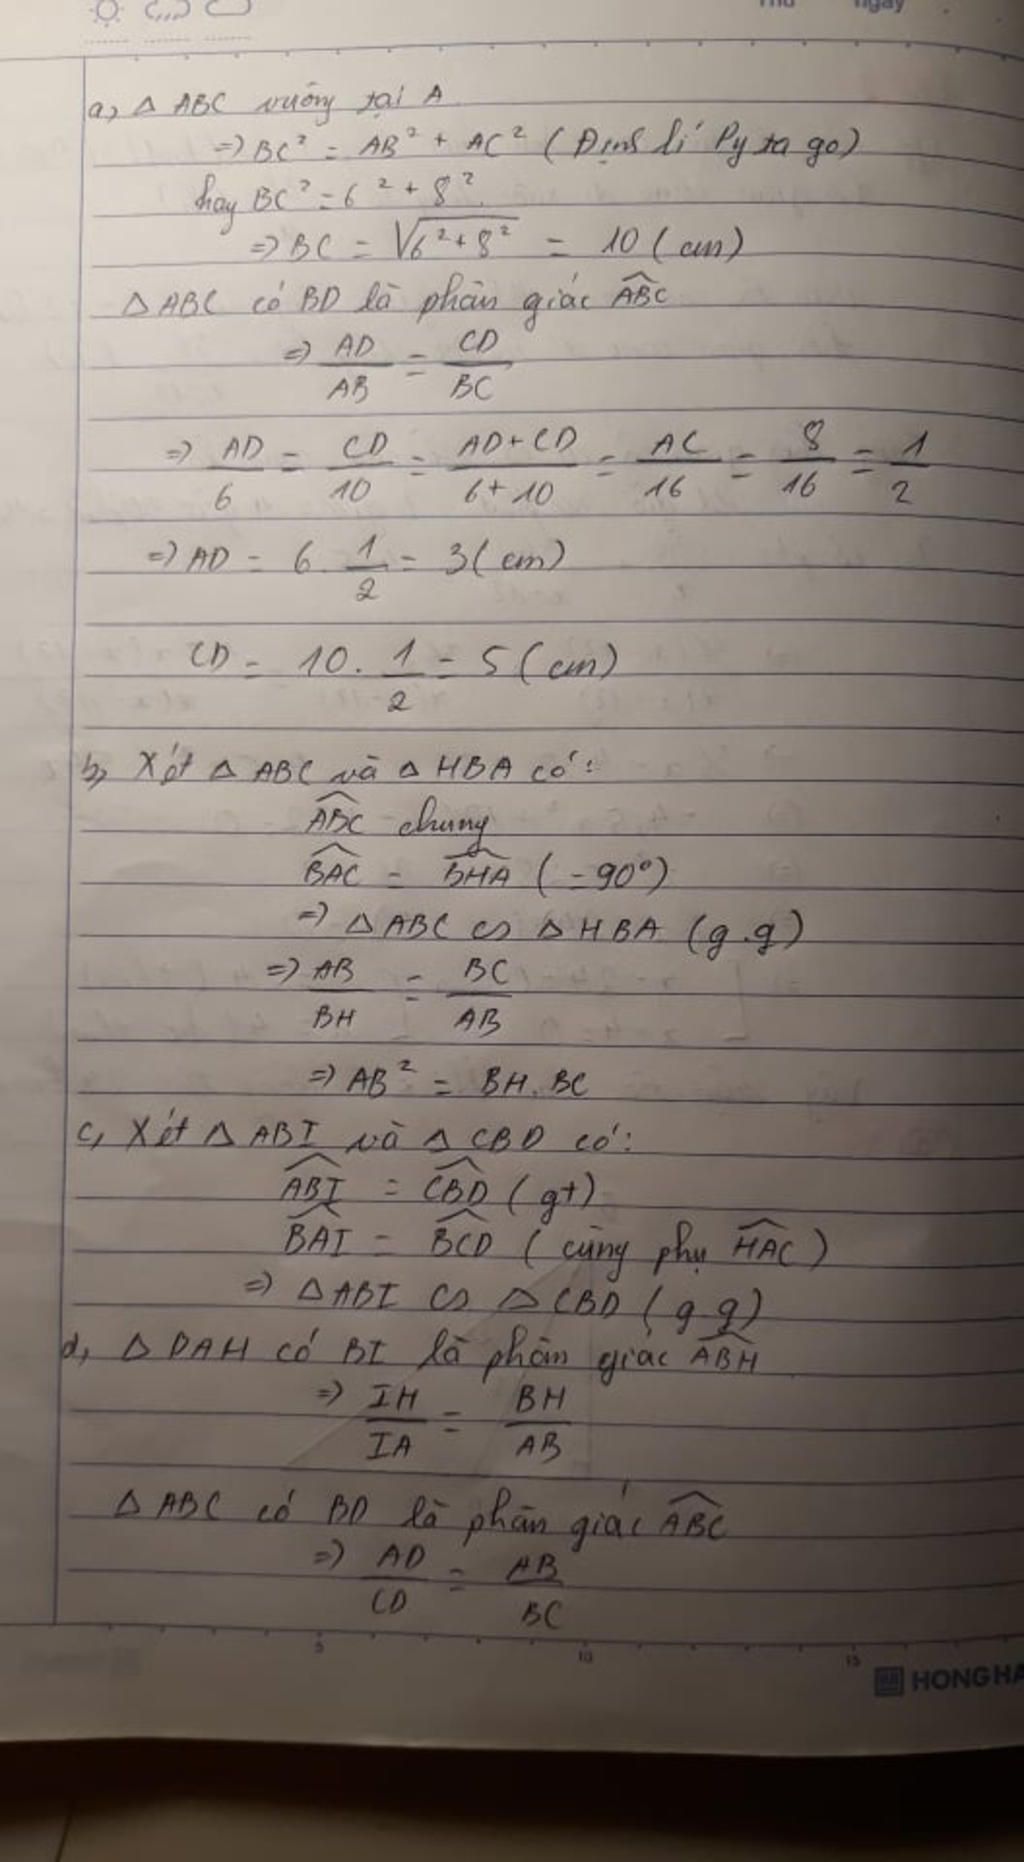 Thứ ngày
a, Δ ABC vuông tại A
=> BC² = AB² + AC² (Định lí Py ta go)
hay BC² = 6² + 8²
=> BC = √(6² + 8²) = 10 (cm)
Δ ABC có BD là phân giác \widehat{ABC}
=> AD/AB = CD/BC
=> AD/6 = CD/10 = (AD + CD)/(6 + 10) = AC/16 = 8/16 = 1/2
=> AD = 6 . 1/2 = 3 (cm)
CD = 10 . 1/2 = 5 (cm)
b, Xét Δ ABC và Δ HBA có:
\widehat{ABC} chung
\widehat{BAC} = \widehat{BHA} (= 90°)
=> Δ ABC ∽ Δ HBA (g.g)
=> AB/BH = BC/AB
=> AB² = BH . BC
c, Xét Δ ABI và Δ CBD có:
\widehat{ABI} = \widehat{CBD} (gt)
\widehat{BAI} = \widehat{BCD} (cùng phụ \widehat{HAC})
=> Δ ABI ∽ Δ CBD (g.g)
d, Δ DAH có BI là phân giác \widehat{ABH}
=> IH/IA = BH/AB
Δ ABC có BD là phân giác \widehat{ABC}
=> AD/CD = AB/BC
5 10 15
HONG HA